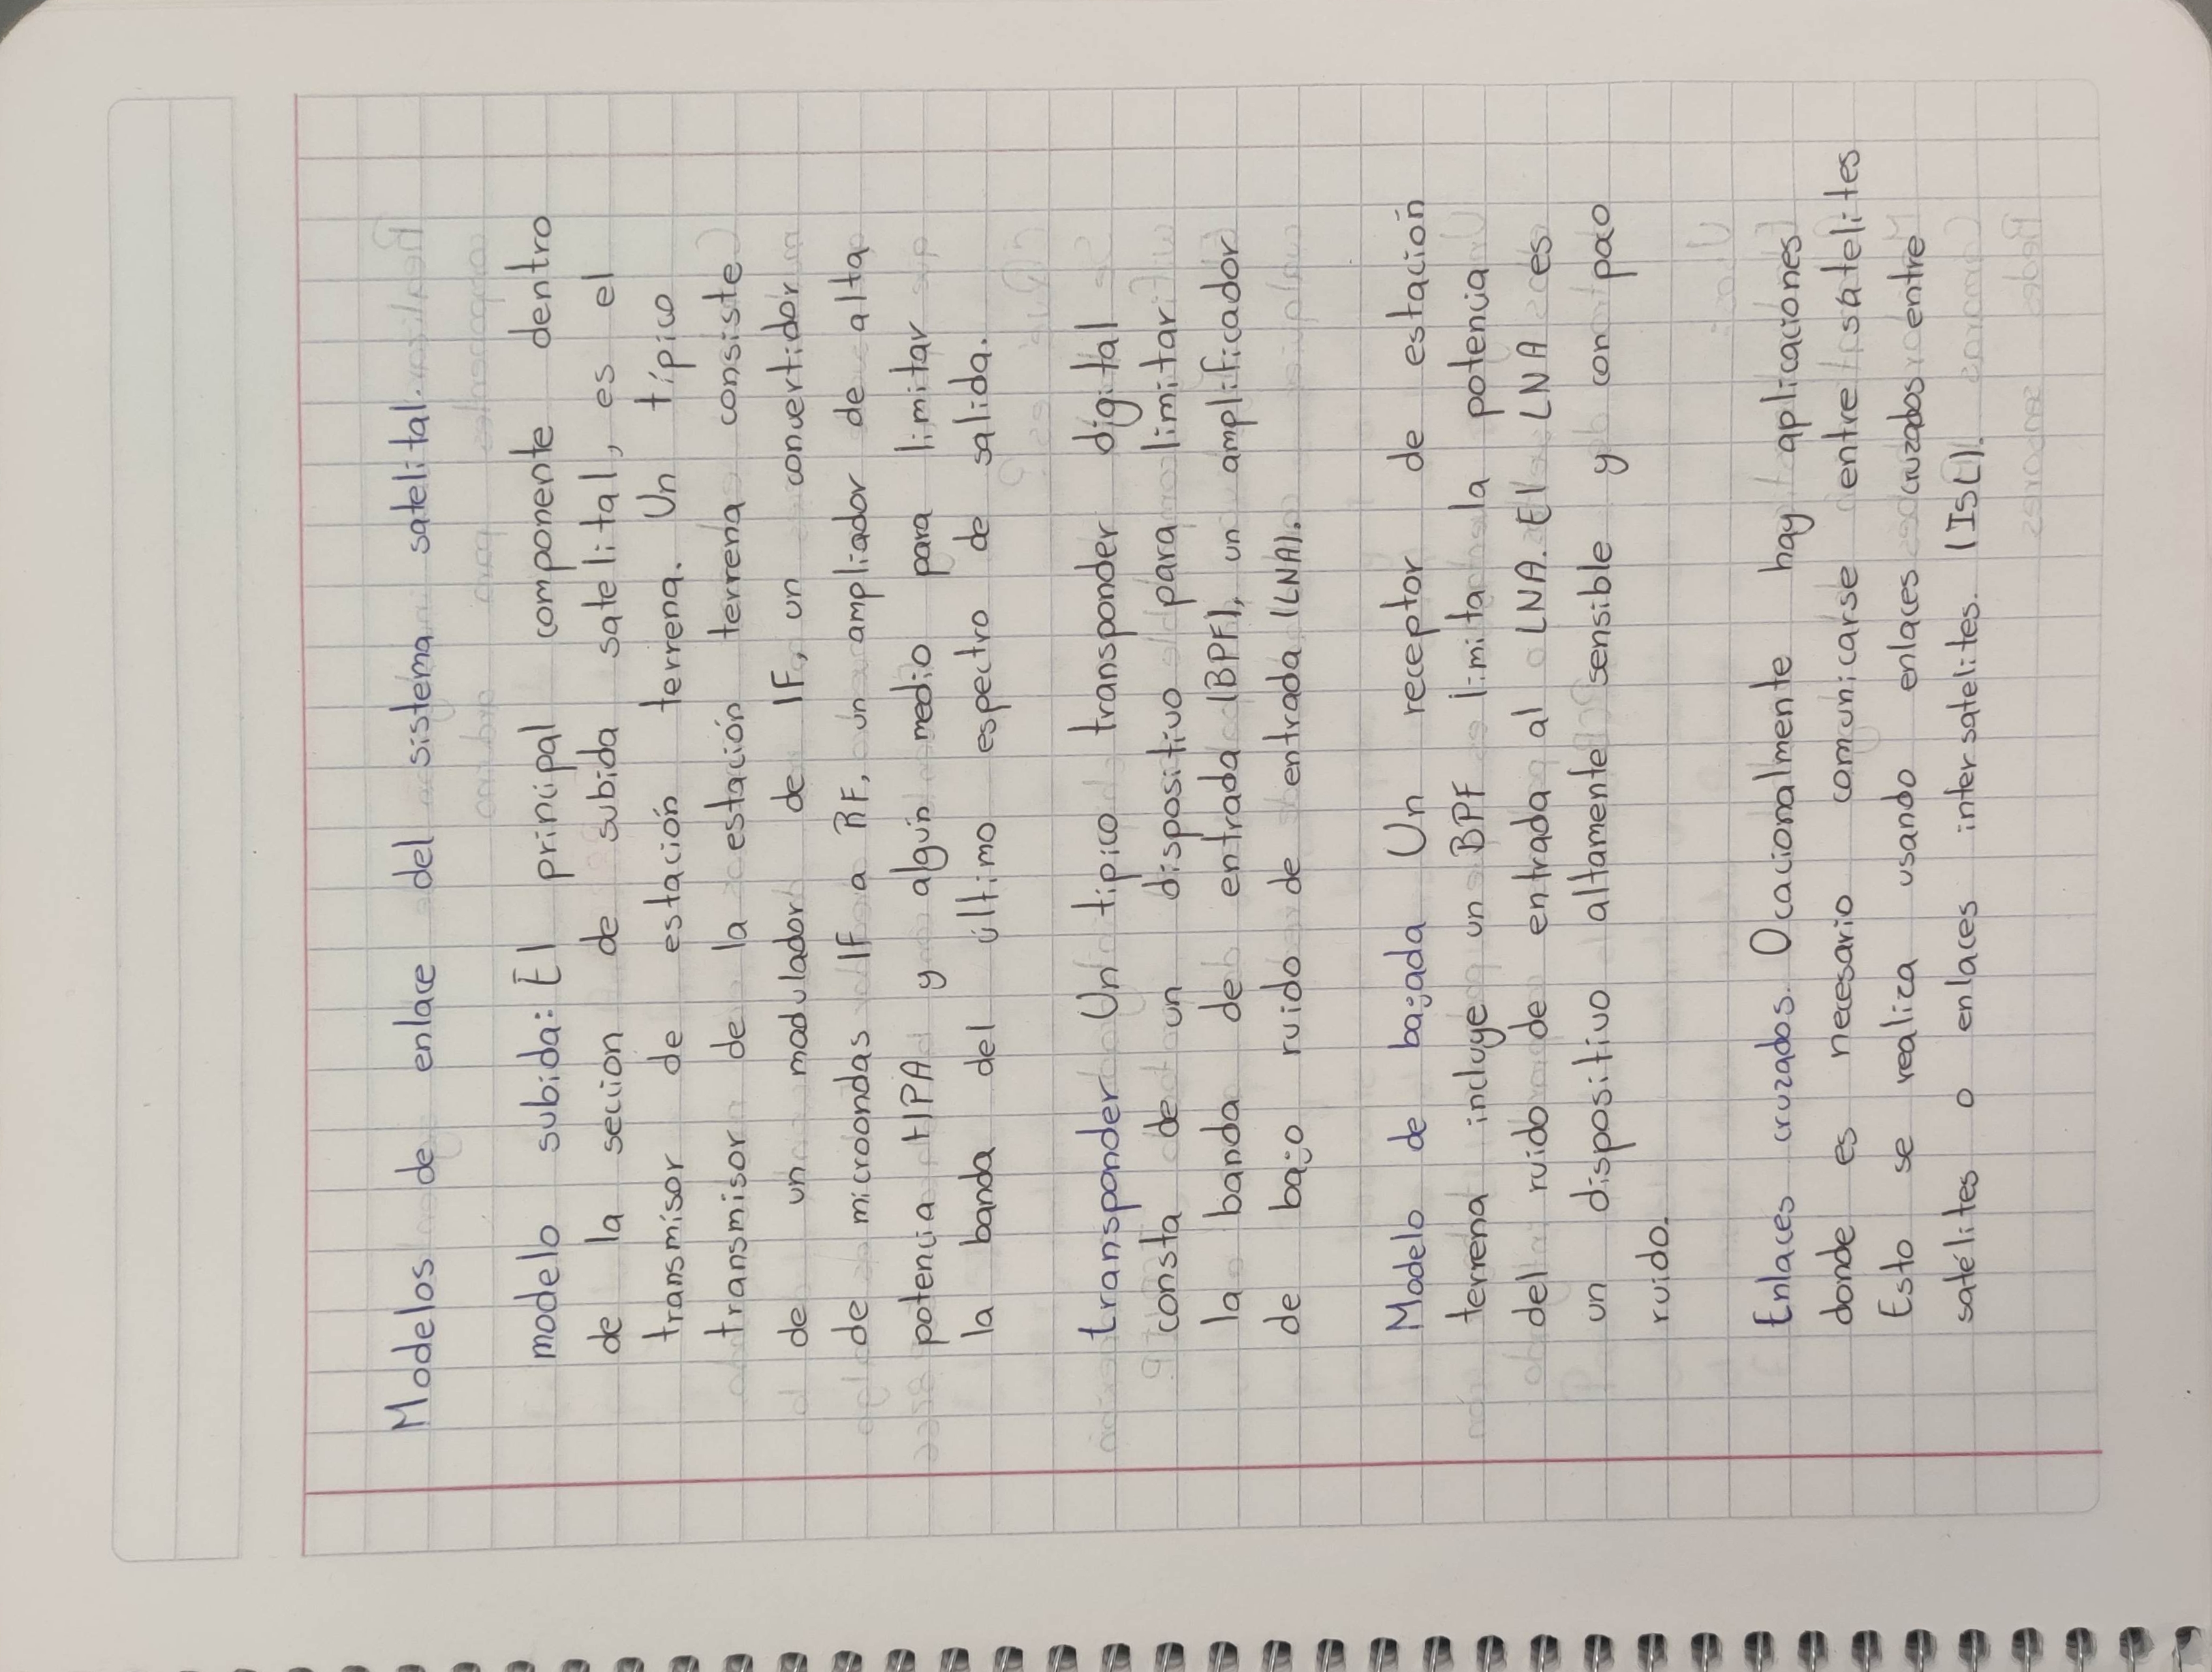 Modelos de enlace del sistema satelital.
modelo subida: El principal componente dentro
de la sección de subida satelital, es el
transmisor de estación terrena. Un típico
transmisor de la estación terrena consiste
de un modulador de IF, un convertidor
de microondas IF a RF, un ampliador de alta
potencia HPA y algún medio para limitar
la banda del último espectro de salida.
transponder Un tipico transponder digital
consta de un dispositivo para limitar
la banda de entrada (BPF), un amplificador
de bajo ruido de entrada (LNA).
Modelo de bajada Un receptor de estación
terrena incluye un BPF limita la potencia
del ruido de entrada al LNA. El LNA es
un dispositivo altamente sensible y con poco
ruido.
Enlaces cruzados. Ocacionalmente hay aplicaciones
donde es necesario comunicarse entre satelites
Esto se realiza usando enlaces cruzados entre
satélites o enlaces intersatelites. (ISL).